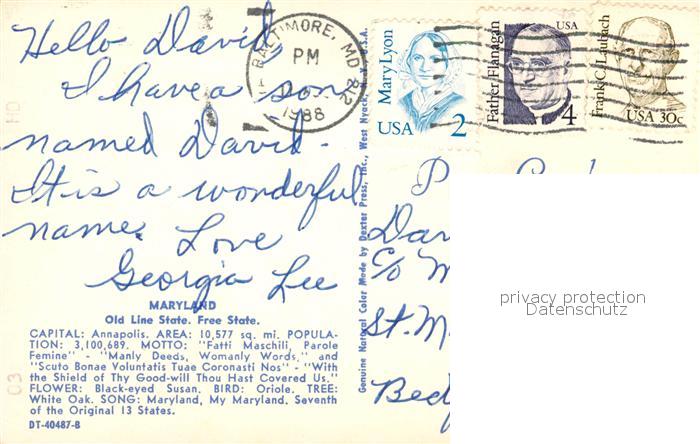 Hello David,
I have a son
named David -
It is a wonderful
name. Love
Georgia Lee
MARYLAND
Old Line State. Free State.
CAPITAL: Annapolis. AREA: 10,577 sq. mi. POPULA-
TION: 3,100,689. MOTTO: "Fatti Maschili, Parole
Femine" - "Manly Deeds, Womanly Words," and
"Scuto Bonae Voluntatis Tuae Coronasti Nos" - "With
the Shield of Thy Good-will Thou Hast Covered Us."
FLOWER: Black-eyed Susan. BIRD: Oriole. TREE:
White Oak. SONG: Maryland, My Maryland. Seventh
of the Original 13 States.
DT-40487-B
HD
03
Genuine Natural Color Made by Dexter Press, Inc., West Nyack, N. Y. U.S.A.
BALTIMORE, MD 212
PM
1988
Mary Lyon
USA 2
Father Flanagan
USA
4
Frank C. Laubach
USA 30c
c/o
St. M
privacy protection
Datenschutz